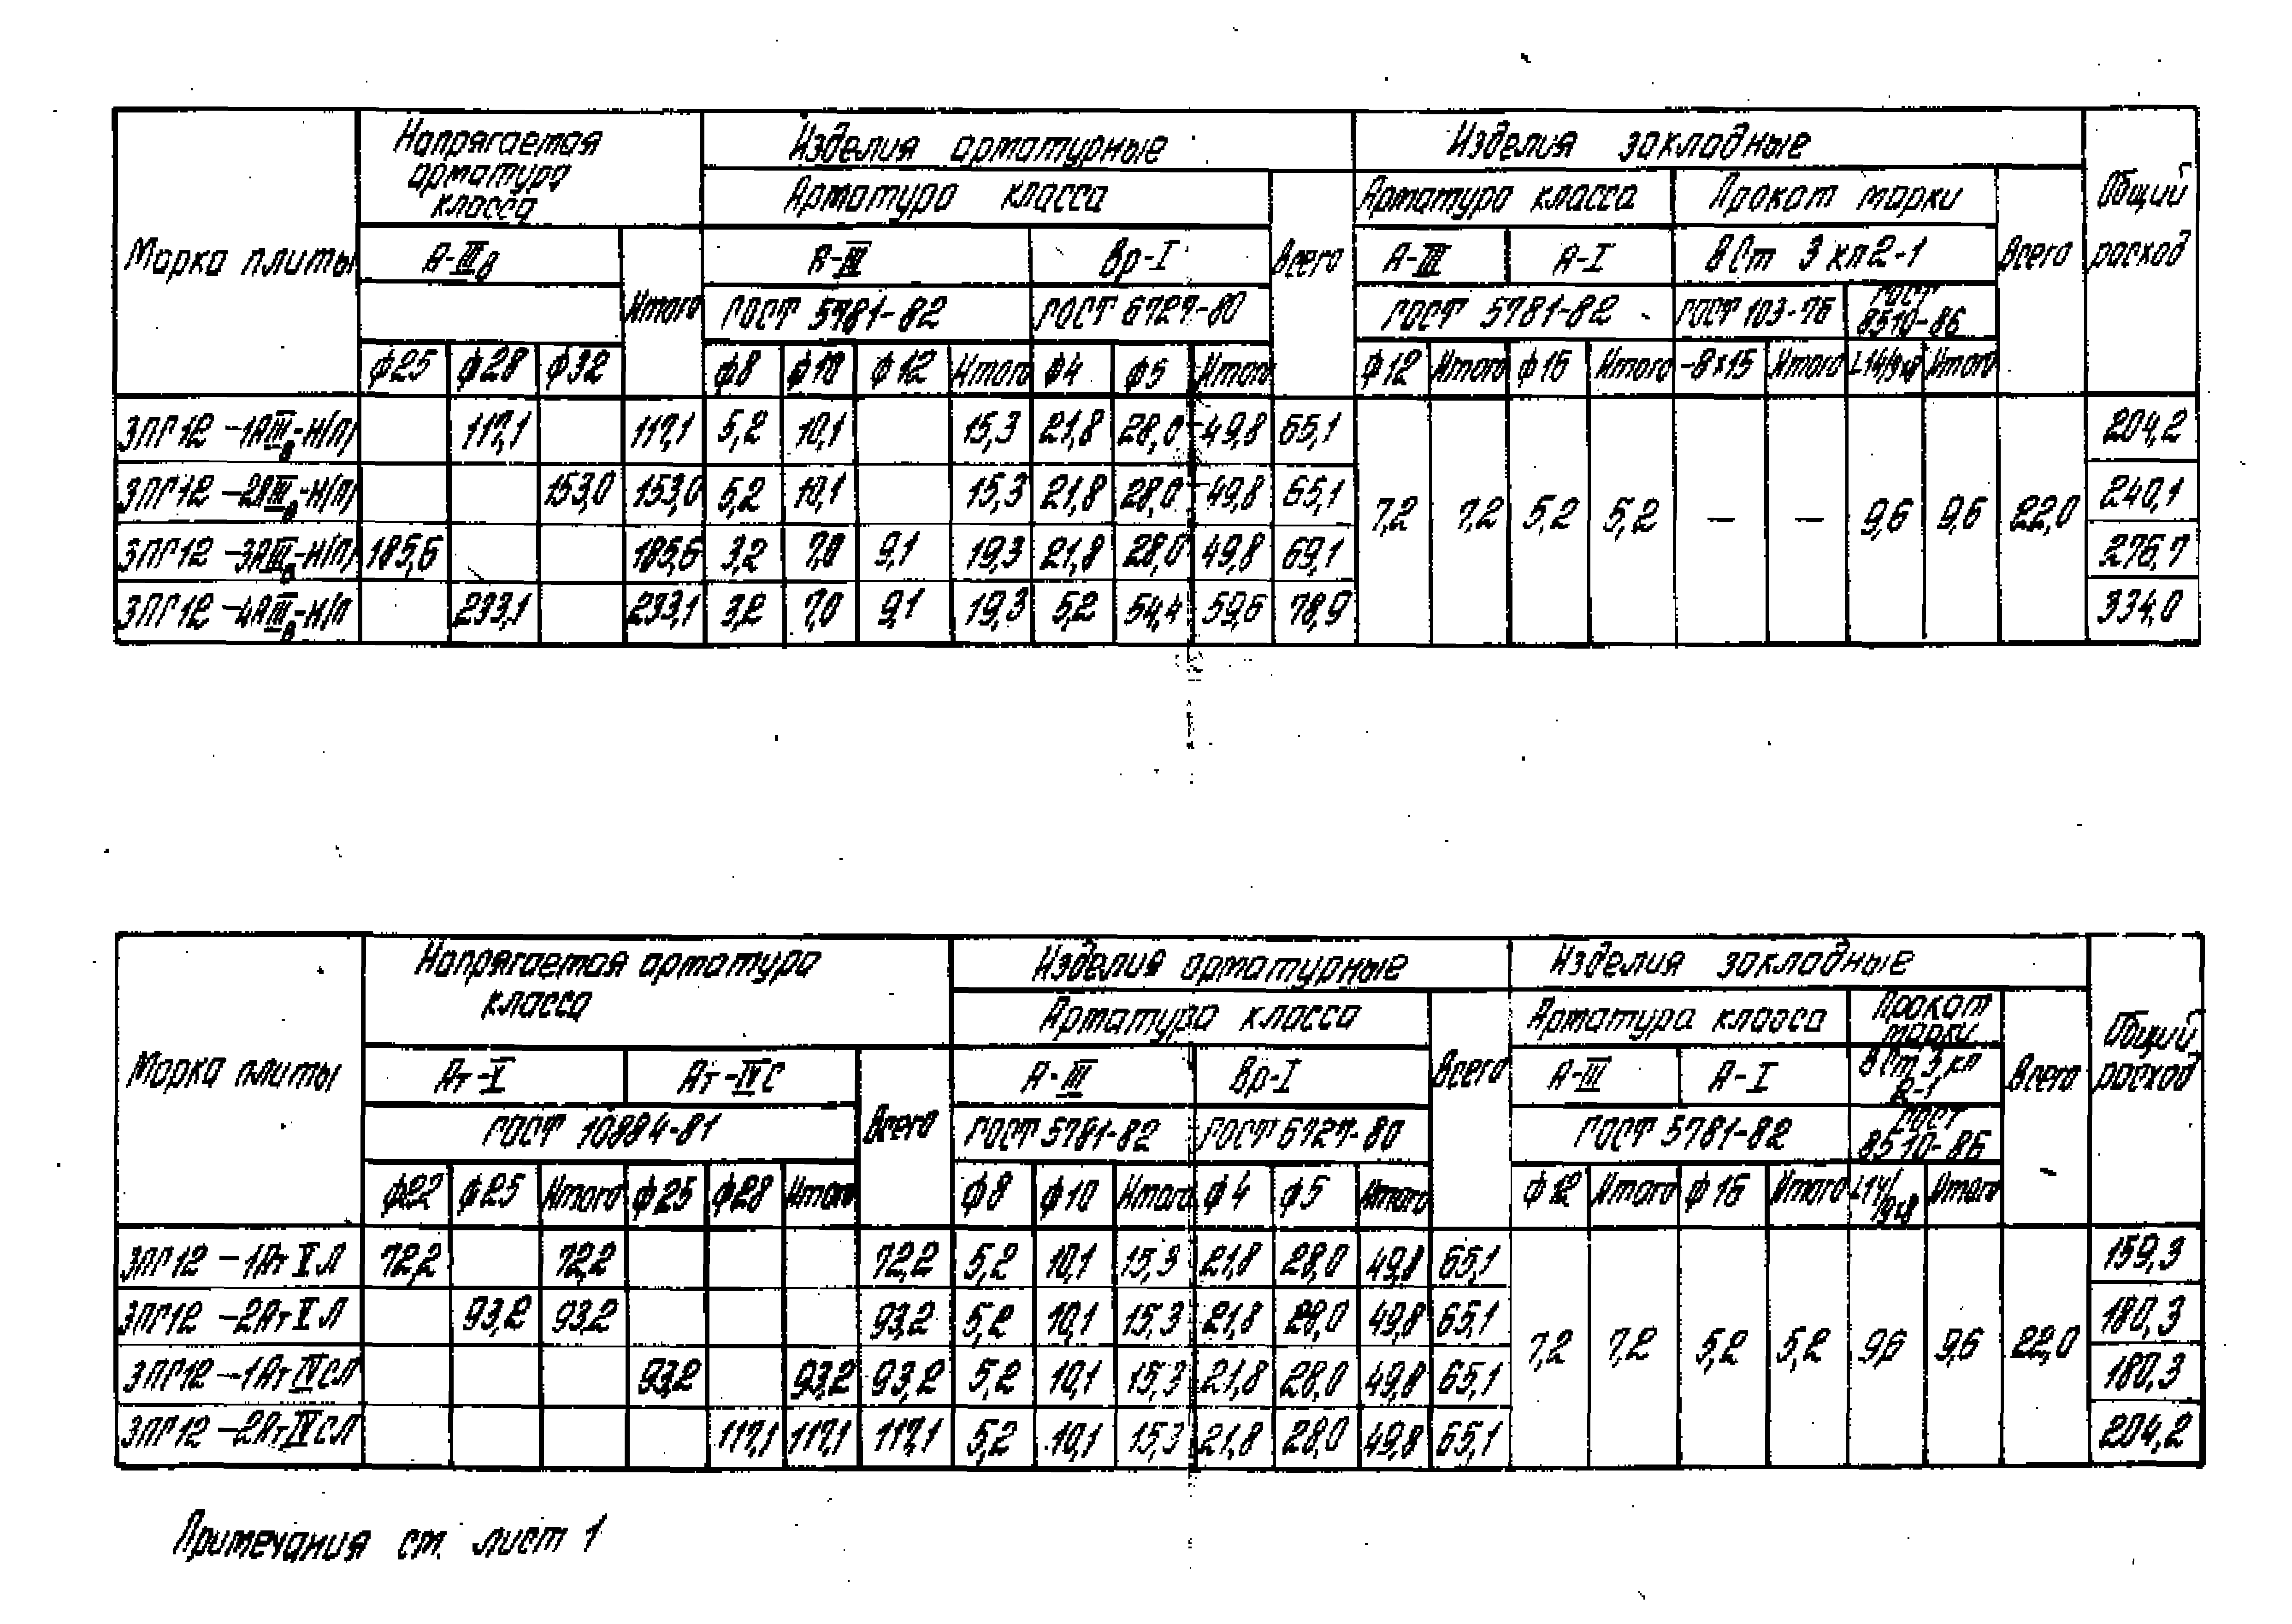 Марка плиты Напрягаемая арматура класса Изделия арматурные Изделия закладные Общий расход
Арматура класса Всего Арматура класса Прокат марки Всего
А-IIIв Итого А-III Вр-I А-III А-I ВСт 3 кп2-1
ГОСТ 5781-82 ГОСТ 6727-80 ГОСТ 5781-82 ГОСТ 103-76 ГОСТ 8510-86
ф25 ф28 ф32 ф8 ф10 ф12 Итого ф4 ф5 Итого ф12 Итого ф16 Итого -8х15 Итого Итого
3ПГ12-1АIIIв-Н(П) 117,1 117,1 5,2 10,1 15,3 21,8 28,0 49,8 65,1 7,2 7,2 5,2 5,2 — — 9,6 9,6 22,0 204,2
3ПГ12-2АIIIв-Н(П) 153,0 153,0 5,2 10,1 15,3 21,8 28,0 49,8 65,1 240,1
3ПГ12-3АIIIв-Н(П) 185,6 185,6 3,2 7,0 9,1 19,3 21,8 28,0 49,8 69,1 276,7
3ПГ12-4АIIIв-Н(П 233,1 233,1 3,2 7,0 9,1 19,3 5,2 54,4 59,6 78,9 334,0
Марка плиты Напрягаемая арматура класса Изделия арматурные Изделия закладные Общий расход
Арматура класса Всего Арматура класса Прокат марки Всего
Ат-V Ат-IVС Всего А-III Вр-I А-III А-I ВСт 3 кп 2-1
ГОСТ 10884-81 ГОСТ 5781-82 ГОСТ 6727-80 ГОСТ 5781-82 ГОСТ 8510-86
ф22 ф25 Итого ф25 ф28 Итого ф8 ф10 Итого ф4 ф5 Итого ф12 Итого ф16 Итого Итого
3ПГ12-1АтVЛ 72,2 72,2 72,2 5,2 10,1 15,3 21,8 28,0 49,8 65,1 7,2 7,2 5,2 5,2 9,6 9,6 22,0 159,3
3ПГ12-2АтVЛ 93,2 93,2 93,2 5,2 10,1 15,3 21,8 28,0 49,8 65,1 180,3
3ПГ12-1АтIVСЛ 93,2 93,2 93,2 5,2 10,1 15,3 21,8 28,0 49,8 65,1 180,3
3ПГ12-2АтIVСЛ 117,1 117,1 117,1 5,2 10,1 15,3 21,8 28,0 49,8 65,1 204,2
Примечания см. лист 1